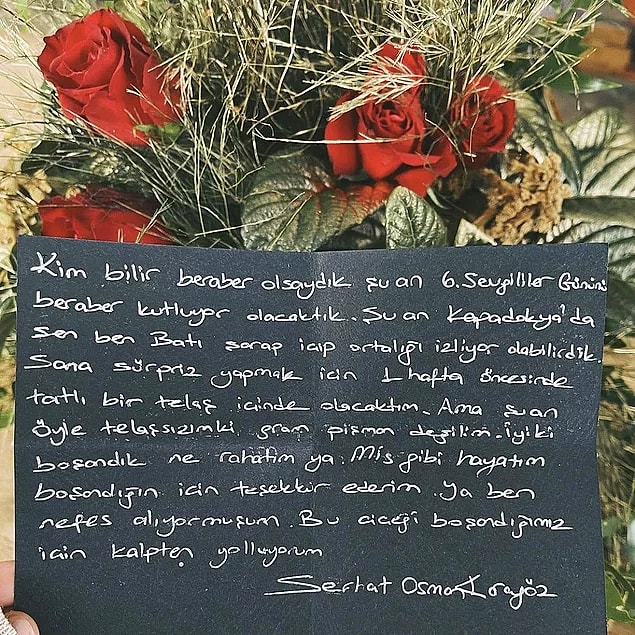 Kim bilir beraber olsaydık şu an 6. Sevgililer Gününü
beraber kutluyor olacaktık. Şu an Kapadokya'da
sen ben Batı şarap içip ortalığı izliyor olabilirdik.
Sana sürpriz yapmak için 1 hafta öncesinde
tatlı bir telaş içinde olacaktım. Ama şuan
öyle telaşsızımki, gram pişman değilim. iyiki
boşandık ne rahatım ya. Mis gibi hayatım
boşandığın için teşekkür ederim. Ya ben
nefes alıyormuşum. Bu çiçeği boşandığımız
için kalpten yolluyorum
Serhat Osman Karagöz